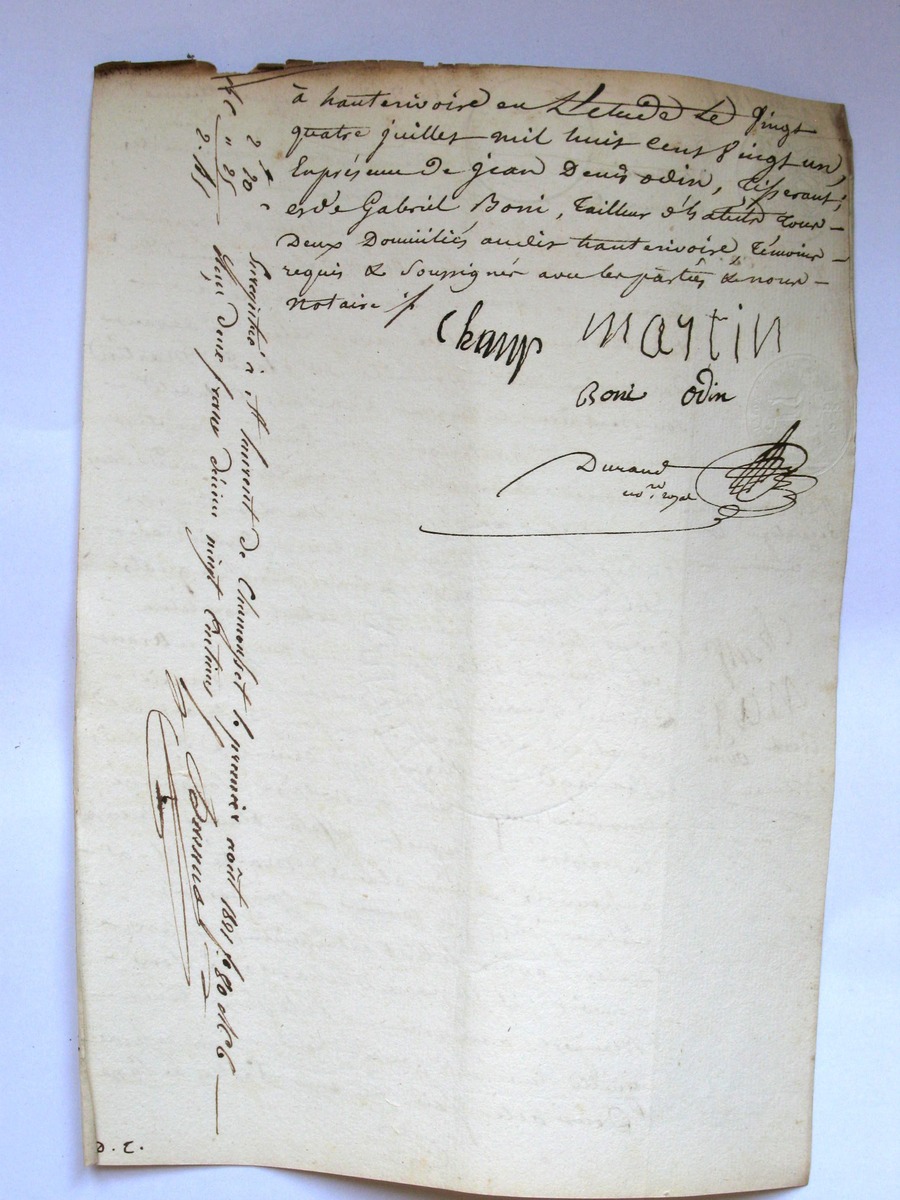 à hauterivoire en L'etude Le Vingt
quatre juillet mil huit cent Vingt un,
En présence de jean Denis odin, Tisserant;
et de Gabriel Boni, Tailleur d'h Tous-
Deux Domiciliés audit hauterivoire, Témoins
requis & Soussignés avec les parties & nous
Notaire
Champ martin
Boni odin
Durand
no.re royal
2 20
" 25
Enregistré à St Laurent de Chamousset le premier août 1821 fo 80 
Reçu deux francs décime vingt Centimes
D. E.